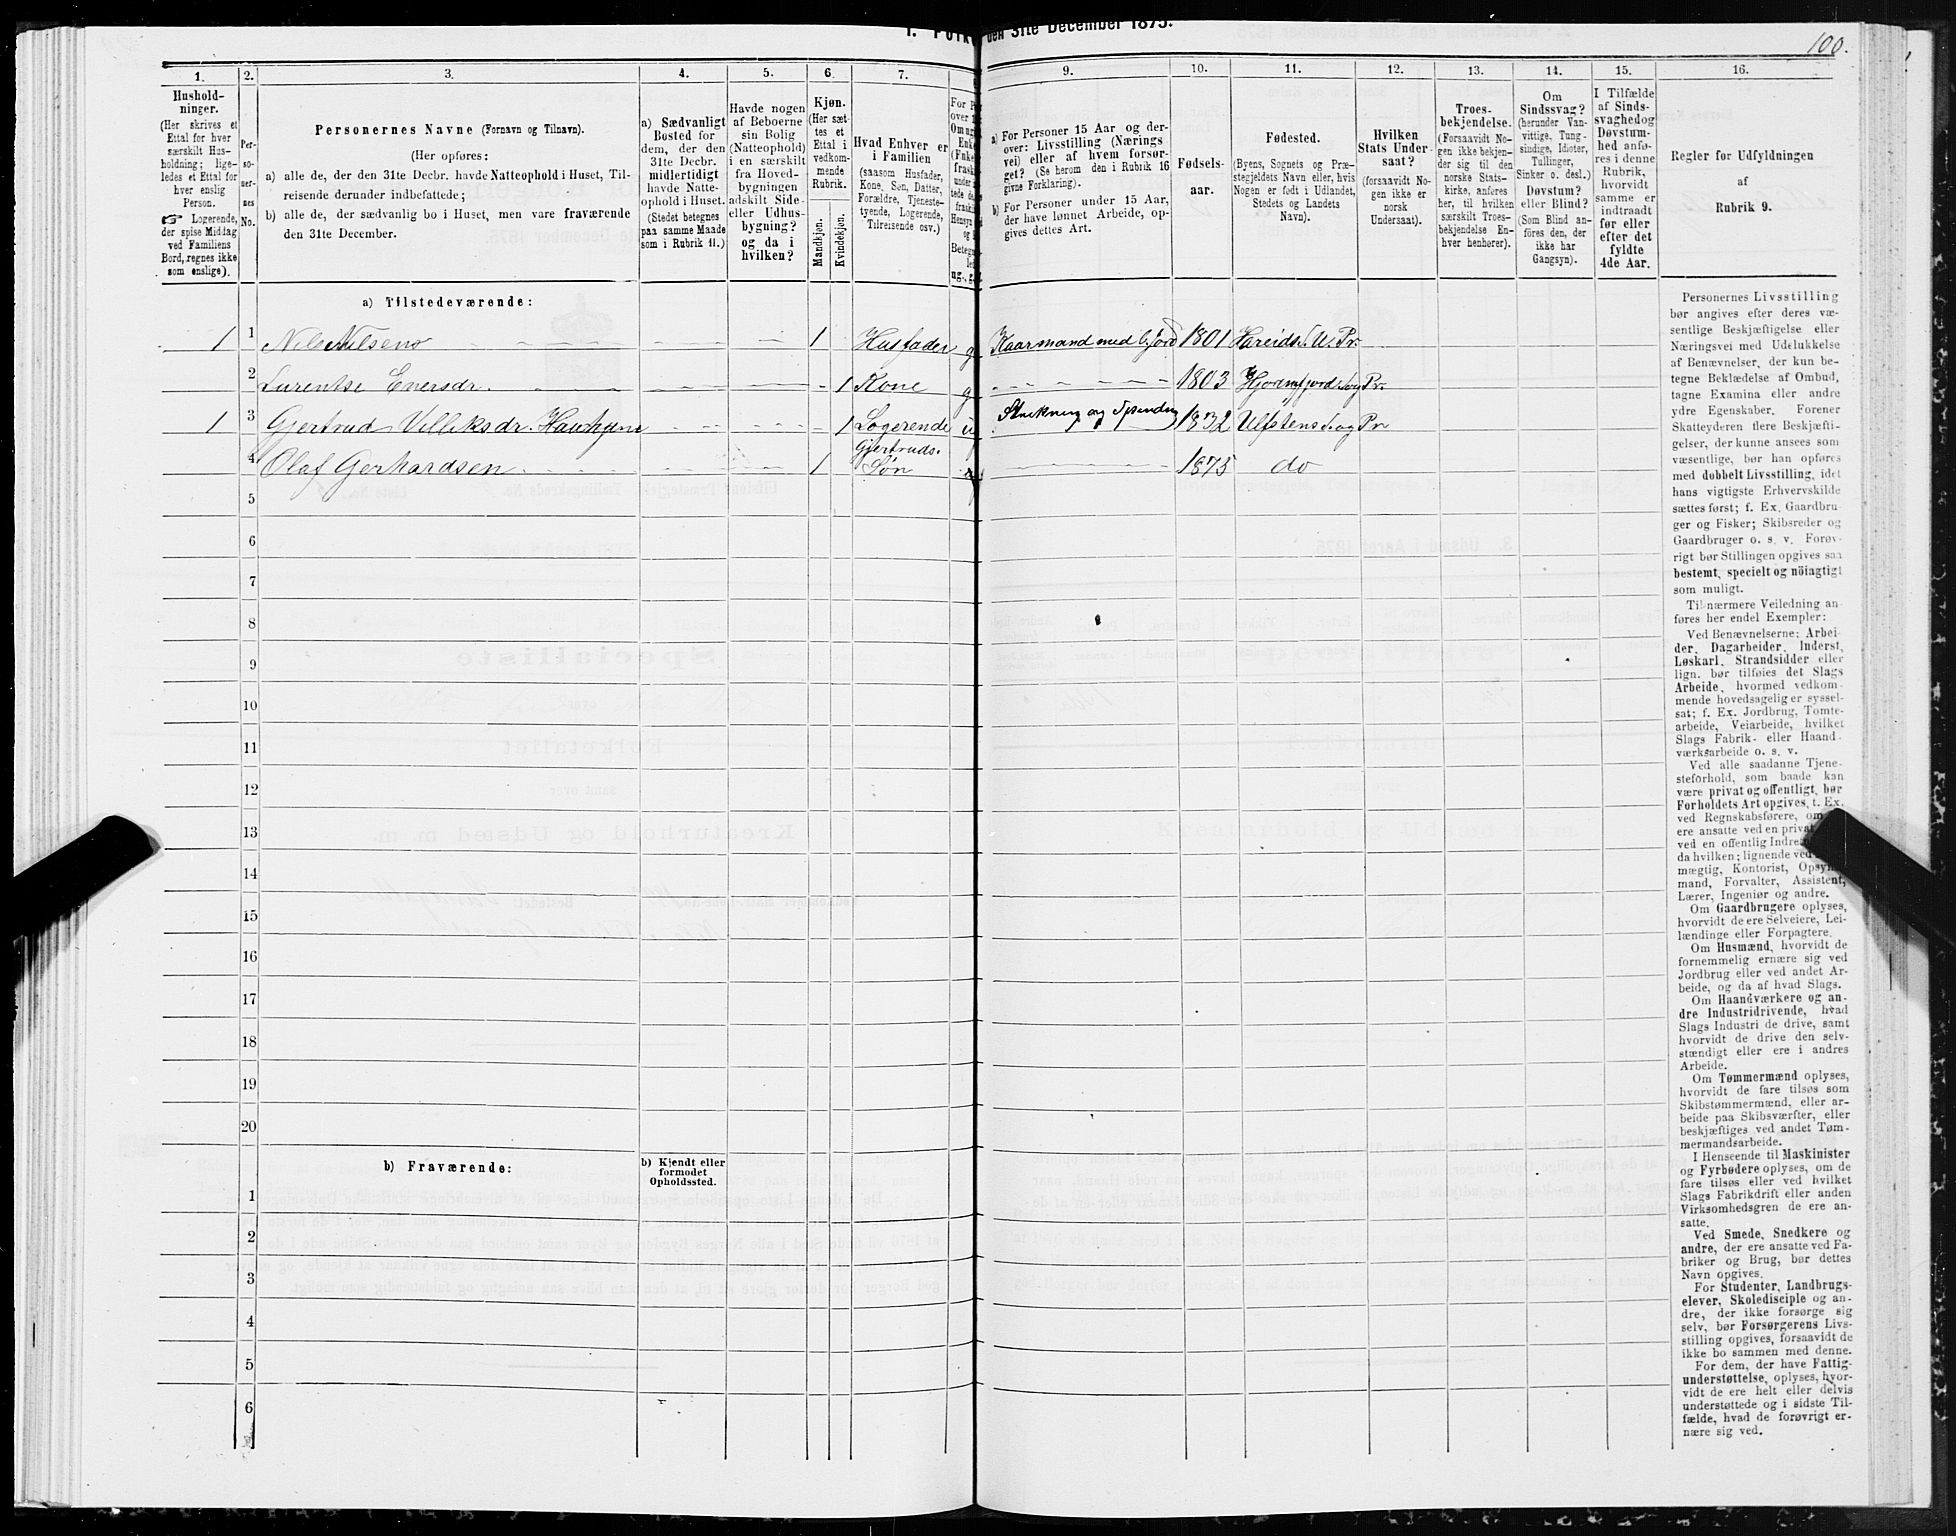 den 31te December 1875.
100.
1. 2. 3. 4. 5. 6. 7. 9. 10. 11. 12. 13. 14. 15. 16.
Hushold-
ninger.
(Her skrives et
Ettal for hver
særskilt Hus-
holdning; lige-
ledes et Ettal for
hver enslig
Person.
☞ Logerende,
der spise Middag
ved Familiens
Bord, regnes ikke
som enslige).
Per-
so-
ner-
nes
No.
Personernes Navne (Fornavn og Tilnavn).
(Her opføres:
a) alle de, der den 31te Decbr. havde Natteophold i Huset, Til-
reisende derunder indbefattede;
b) alle de, der sædvanlig bo i Huset, men vare fraværende
den 31te December.
a) Sædvanligt
Bosted for
dem, der den
31te Decbr.
midlertidigt
havde Natte-
ophold i Huset.
(Stedet betegnes
paa samme Maade
som i Rubrik 11.)
Havde nogen
af Beboerne
sin Bolig
(Natteophold)
i en særskilt
fra Hoved-
bygningen
adskilt Side-
eller Udhus-
bygning?
og da i
hvilken?
Kjøn.
(Her sæt-
tes et
Ettal i
vedkom-
mende
Rubrik.
Mandkjøn.
Kvindekjøn.
Hvad Enhver er
i Familien
(saasom Husfader,
Kone, Søn, Datter,
Forældre, Tjeneste-
tyende, Logerende,
Tilreisende osv.)
a) For Personer 15 Aar og der-
over: Livsstilling (Nærings-
vei) eller af hvem forsør-
get? (Se herom den i Rubrik 16
givne Forklaring).
b) For Personer under 15 Aar,
der have lønnet Arbeide, op-
gives dettes Art.
Fødsels-
aar.
Fødested.
(Byens, Sognets og Præ-
stegjeldets Navn eller, hvis
Nogen er født i Udlandet,
Stedets og Landets
Navn).
Hvilken
Stats Under-
saat?
(forsaavidt No-
gen ikke er
norsk
Undersaat).
Troes-
bekjendelse.
(Forsaavidt No-
gen ikke bekjen-
der sig til den
norske Stats-
kirke, anføres
her, til hvilken
særskilt Troes-
bekjendelse En-
hver henhører).
Om
Sindssvag?
(herunder Van-
vittige, Tung-
sindige, Idioter,
Tullinger,
Sinker o. desl.)
Døvstum?
eller Blind?
(Som Blind an-
føres den, der
ikke har
Gangsyn).
I Tilfælde
af Sinds-
svaghed og
Døvstum-
hed anfø-
res i denne
Rubrik,
hvorvidt
samme er
indtraadt
før eller
efter det
fyldte
4de Aar.
Regler for Udfyldningen
af
Rubrik 9.
a) Tilstedeværende:
1 1 Nils Nilsens 1 Husfader g Kaarmand med Jord 1801 Hareids S. U. Pr.
2 Lurentse Enersdr. 1 Kone g 1803 Hjoremfjords sog Pr.
1 3 Gjertrud Villiksdr. 1 Logerende u Strikning og Spinding 1832 Ulfstens S. og Pr
4 Olaf Gerhardsen 1 Gjertruds Søn 1875 do
5
6
7
8
9
10
11
12
13
14
15
16
17
18
19
20
b) Fraværende:
b) Kjendt eller
formodet
Opholdssted.
1
2
3
4
5
6
Personernes Livsstilling
bør angives efter deres væ-
sentlige Beskjæftigelse eller
Næringsvei med Udelukkelse
af Benævnelser, der kun be-
tegne Beklædelse af Ombud,
tagne Examina eller andre
ydre Egenskaber. Forener
Skatteyderen flere Beskjæfti-
gelser, der kunne ansees som
væsentlige, bør han opføres
med dobbelt Livsstilling, idet
hans vigtigste Erhvervskilde
sættes først; f. Ex. Gaardbru-
ger og Fisker; Skibsreder og
Gaardbruger o. s. v. Forøv-
rigt bør Stillingen opgives saa
bestemt, specielt og nøiagtigt
som muligt.
Til nærmere Veiledning an-
føres her endel Exempler:
Ved Benævnelserne: Arbei-
der, Dagarbeider, Inderst,
Løskarl, Strandsidder eller
lign. bør tilføies det Slags
Arbeide, hvormed vedkom-
mende hovedsagelig er syssel-
sat; f. Ex. Jordbrug, Tomte-
arbeide, Veiarbeide, hvilket
Slags Fabrik- eller Haand-
værksarbeide o. s. v.
Ved alle saadanne Tjene-
steforhold, som baade kan
være privat og offentligt, bør
Forholdets Art opgives, t. Ex.
ved Regnskabsførere, om
ere ansatte ved en privat
ved en offentlig
da hvilken; lignende ved
mægtig, Kontorist,
mand, Forvalter, Assistent,
Lærer, Ingeniør og andre.
Om Gaardbrugere oplyses,
hvorvidt de ere Selveiere, Lei-
lændinge eller Forpagtere.
Om Husmænd, hvorvidt de
fornemmelig ernære sig ved
Jordbrug eller ved andet Ar-
beide, og da af hvad Slags.
Om Haandværkere og an-
dre Industridrivende, hvad
Slags Industri de drive, samt
hvorvidt de drive den selv-
stændigt eller ere i andres
Arbeide.
Om Tømmermænd oplyses,
hvorvidt de fare tilsøs som
Skibstømmermænd, eller ar-
beide paa Skibsværfter, eller
beskjæftiges ved andet Tøm-
mermandsarbeide.
I Henseende til Maskinister
og Fyrbødere oplyses, om de
fare tilsøs eller ved hvilket
Slags Fabrikdrift eller anden
Virksomhedsgren de ere an-
satte.
Ved Smede, Snedkere og
andre, der ere ansatte ved Fa-
briker og Brug, bør dettes
Navn opgives.
For Studenter, Landbrugs-
elever, Skoledisciple og an-
dre, der ikke forsørge sig
selv, bør Forsørgerens Livs-
stilling opgives, forsaavidt de
ikke bo sammen med denne.
For dem, der have Fattig-
understøttelse, oplyses, hvor-
vidt de ere helt eller delvis
understøttede og i sidste Til-
fælde, hvad de forøvrigt er-
nære sig ved.